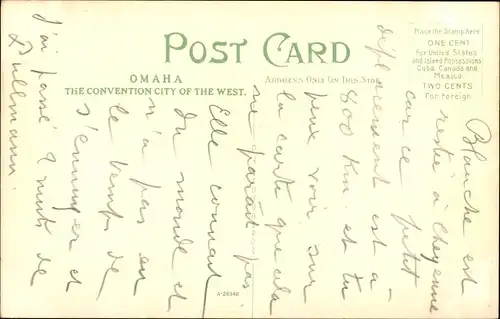 POST CARD
OMAHA
THE CONVENTION CITY OF THE WEST.
ADDRESS ONLY ON THIS SIDE
Place the Stamp here
ONE CENT
for United States
and Island Possessions
Cuba, Canada and
Mexico
TWO CENTS
For Foreign
Blanche est
restée à Cheyenne
car ce petit
déplacement est à
800 Km. et tu
peux voir sur
la carte que cela
ne paraît pas
Elle connaît
du monde et
n'a pas eu
le temps de
s'ennuyer et
j'ai passé 2 nuits de
Pullmann.
A-28348